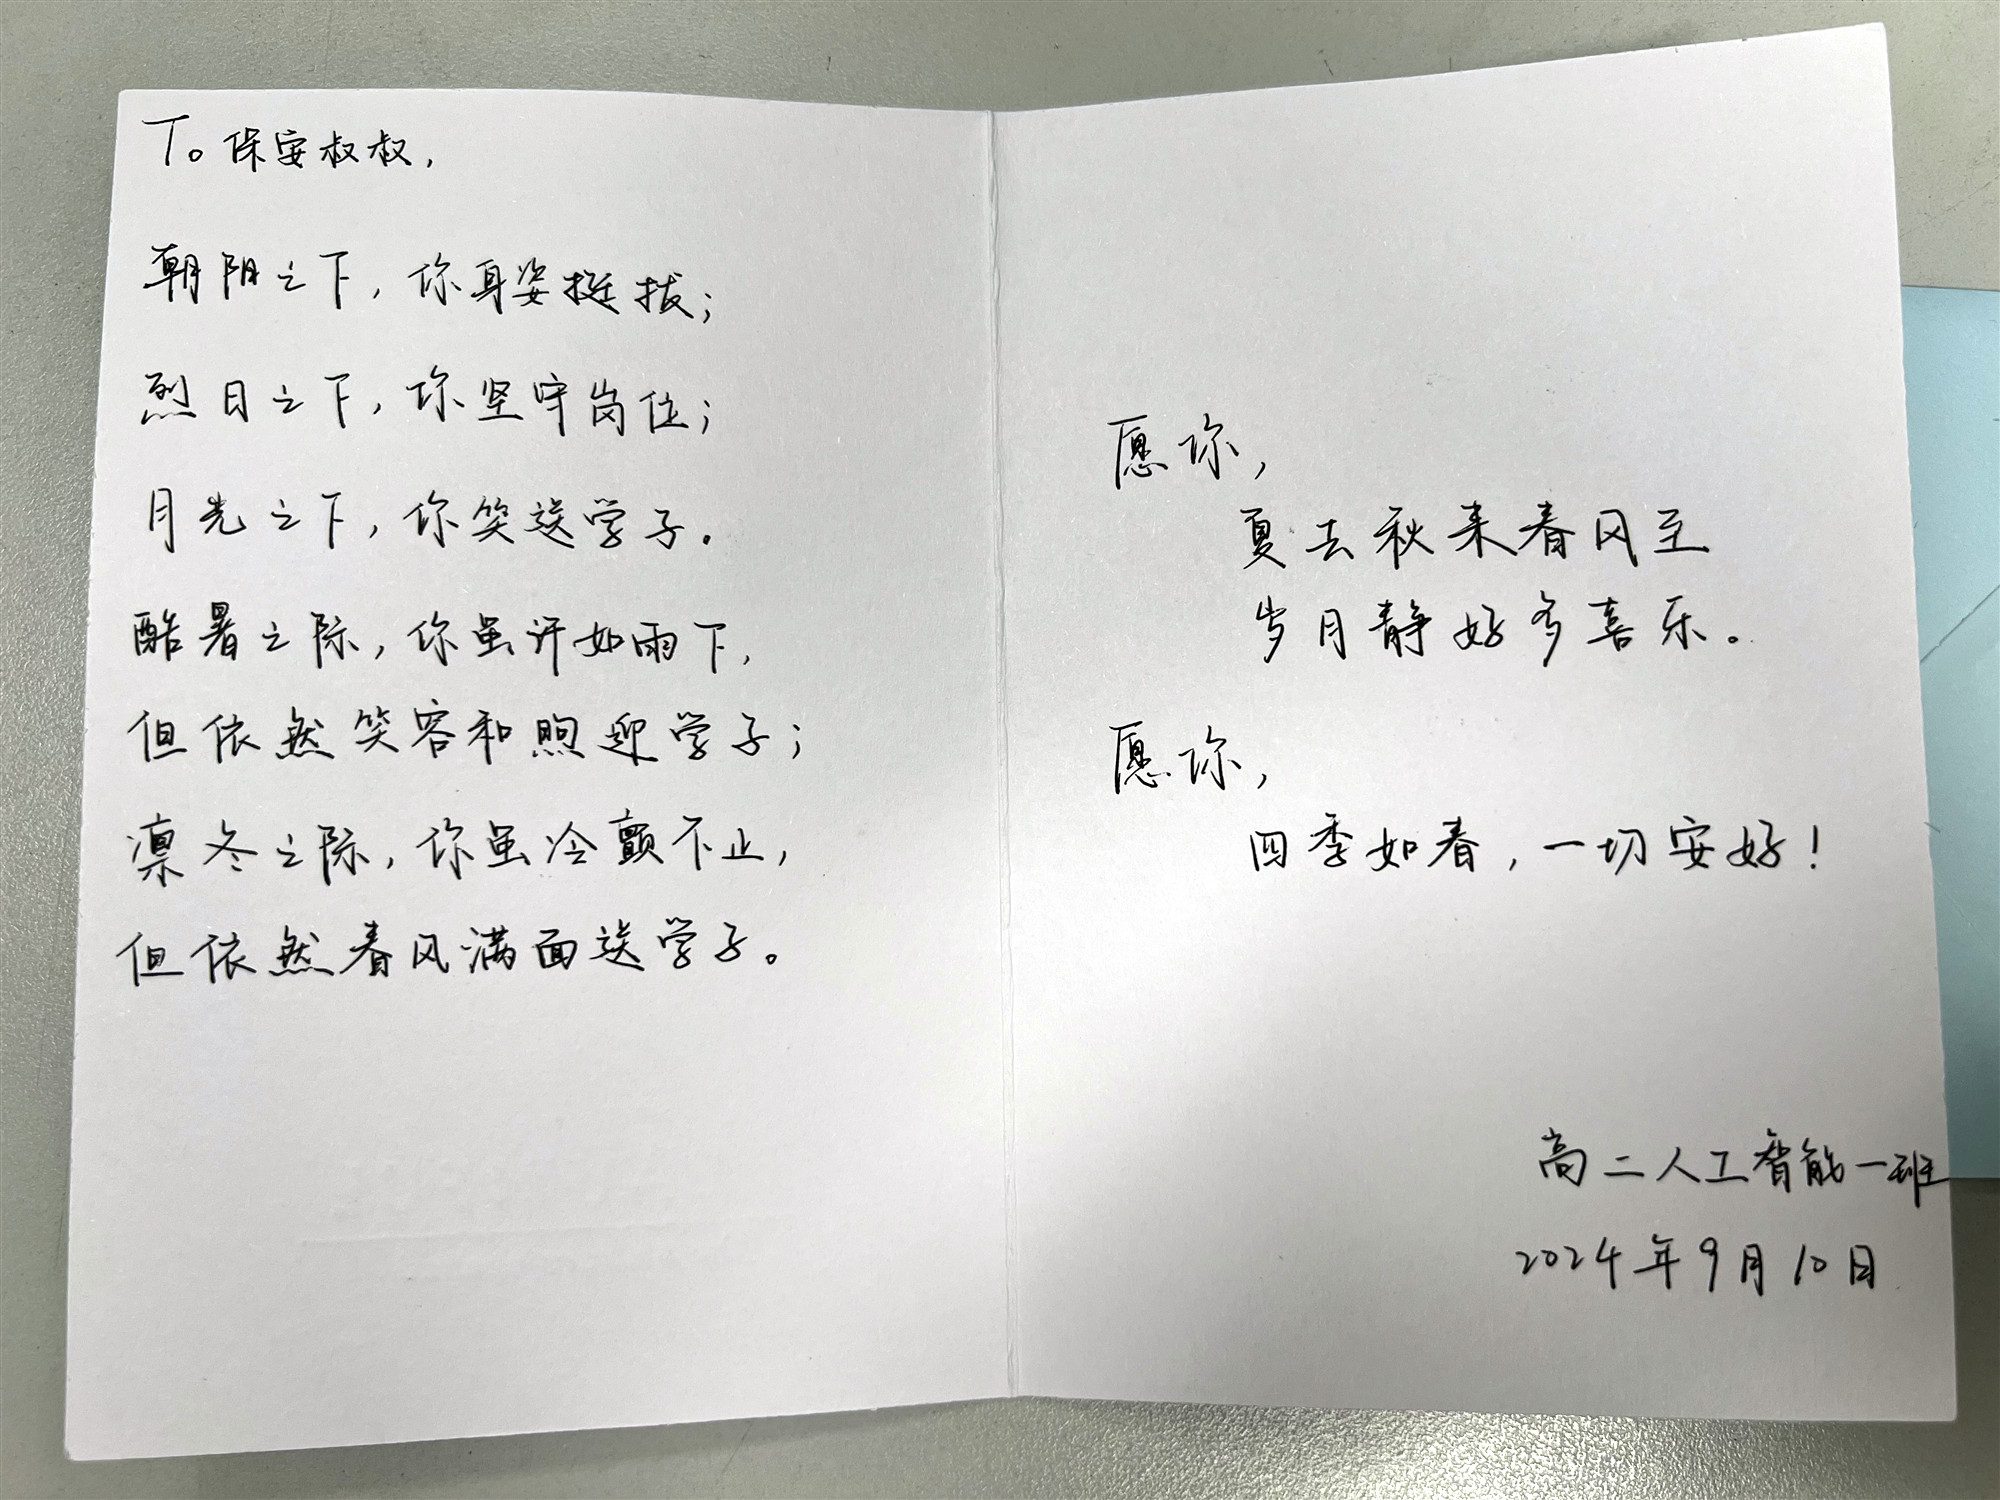 To 保安叔叔，
朝阳之下，你身姿挺拔；
烈日之下，你坚守岗位；
月光之下，你笑送学子。
酷暑之际，你虽汗如雨下，
但依然笑容和煦迎学子；
凛冬之际，你虽冷颤不止，
但依然春风满面送学子。
愿你，
夏去秋来春风至
岁月静好多喜乐。
愿你，
四季如春，一切安好！
高二人工智能一班
2024年9月10日